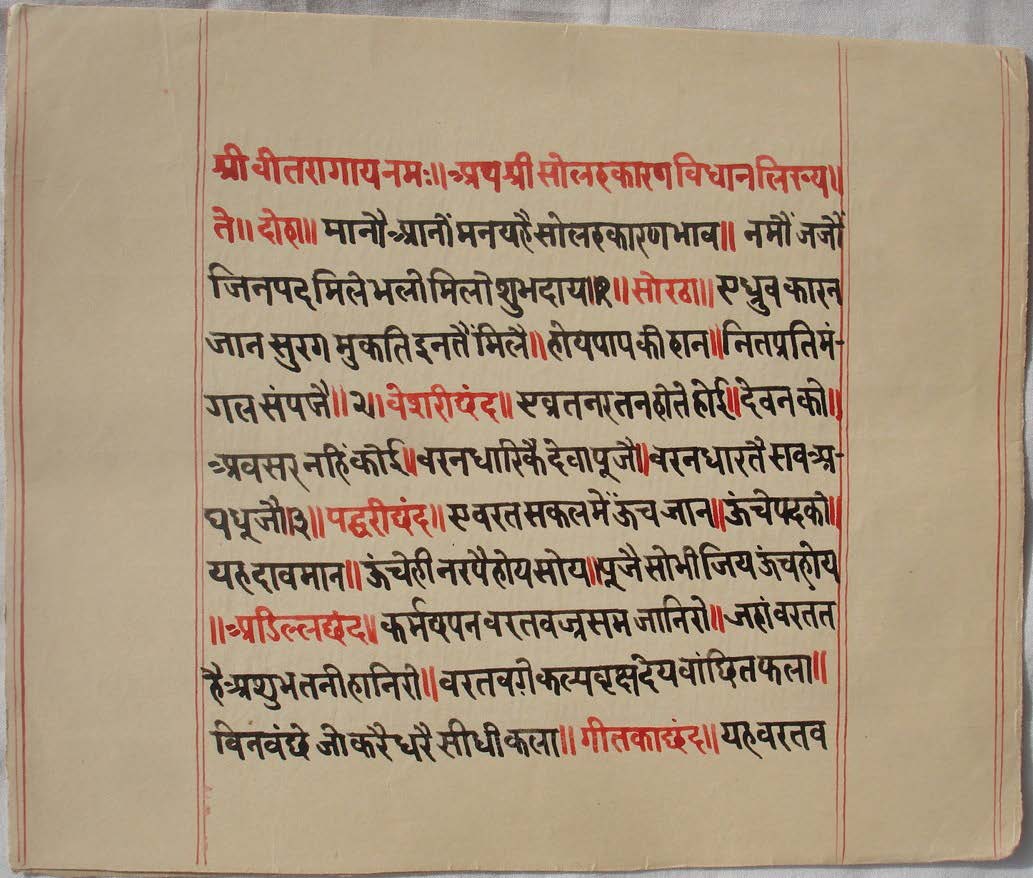 श्री वीतरागाय नमः॥ अथ श्री सोलहकारण विधान लिख्य॥
ते॥ दोहा॥ मानौ आनौं मन यहै सोलहकारण भाव॥ नमौं जजौं
जिनपद मिले भलो मिलो शुभदाय॥१॥ सोरठा॥ ए ध्रुव कारन
जान सुरग मुकति इनतैं मिलै॥ होय पाप की हान॥ नित प्रति मं-
गल संपजै॥२॥ वेशरी छंद॥ ए व्रत नर तन ही ते होई॥ देवन को॥
अवसर नहिं कोई॥ वरन धारिकै देवा पूजै॥ वरन धारतै सव अ-
घ धूजौ॥३॥ पद्धरी छंद॥ ए वरत सकल में ऊंच जान॥ ऊंचे पद को॥
यह दाव मान॥ ऊंचे ही नरपै होय सोय॥ पूजै सो भी जिय ऊंच होय
॥ अडिल्ल छंद॥ कर्म षपन वरत वज्र सम जानि रो॥ जहां वरत त
है अशुभ तनी हानि री॥ वरत वरी कल्पवृक्ष देय वांछित फला॥
विन वंछे जो करै धरै सीधी कला॥ गीतका छंद॥ यह वरत व